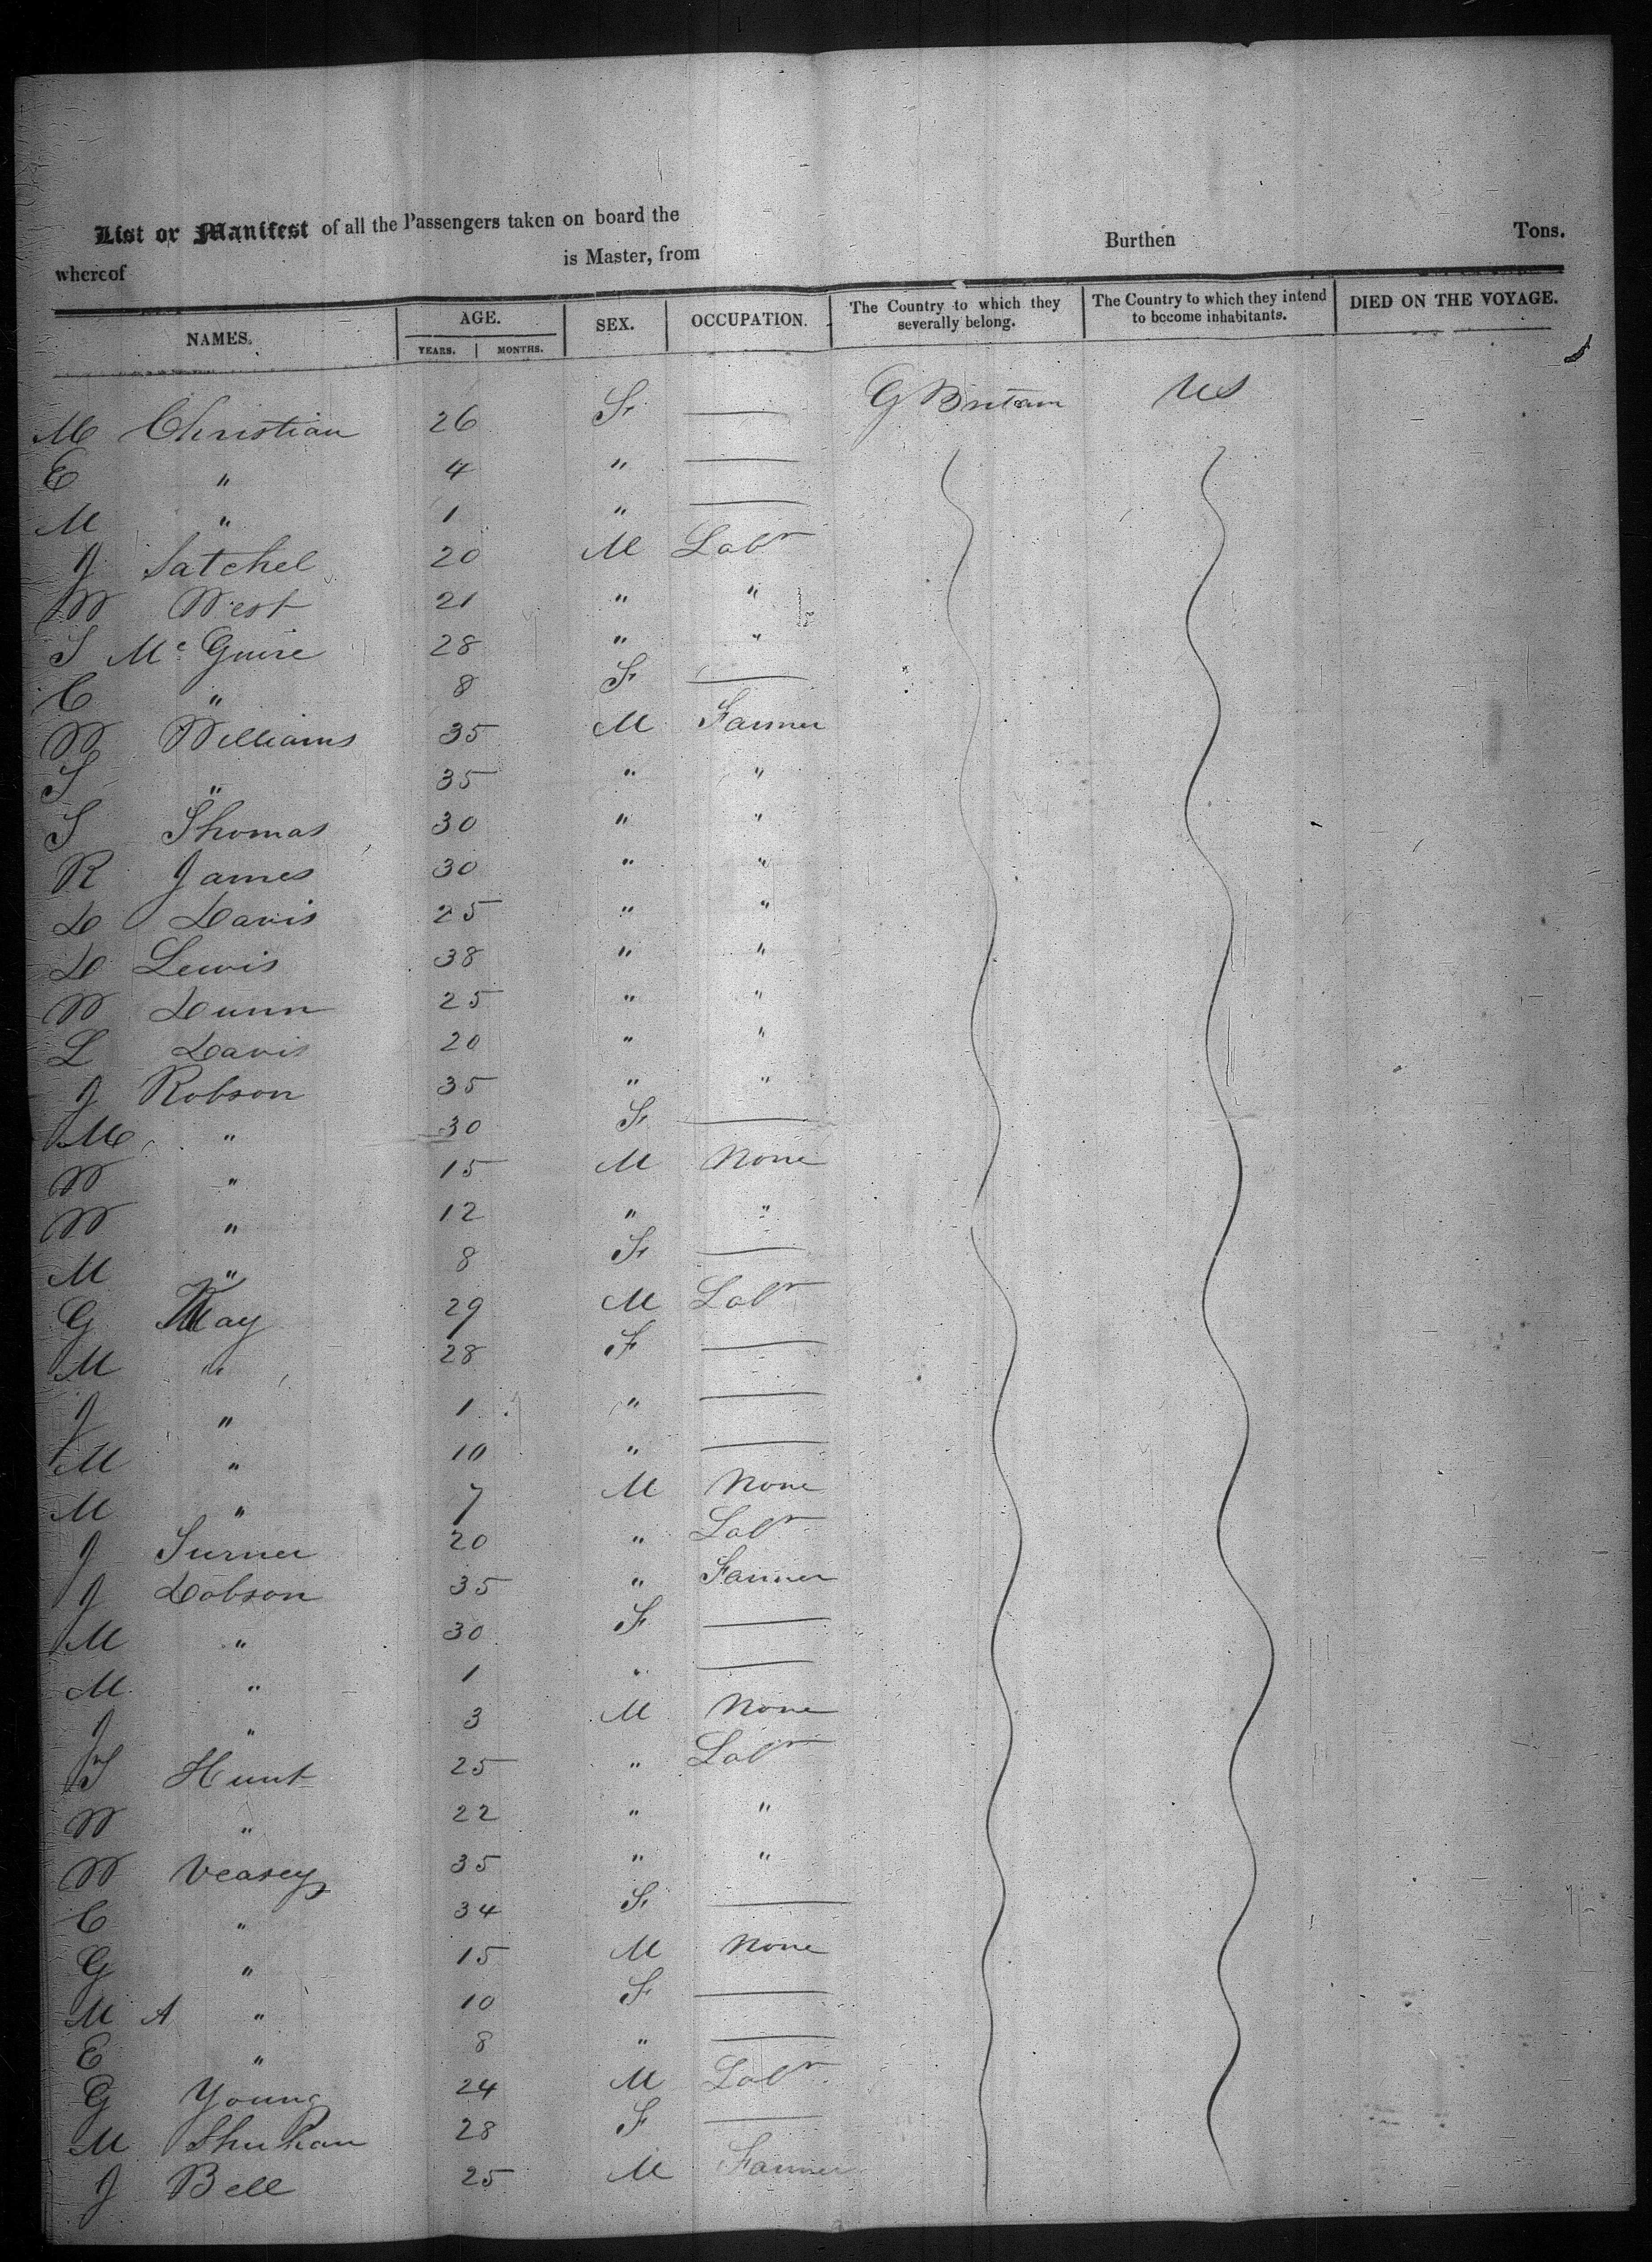 List or Manifest of all the Passengers taken on board the Burthen Tons.
whereof is Master, from
NAMES. AGE. SEX. OCCUPATION. The Country to which they severally belong. The Country to which they intend to become inhabitants. DIED ON THE VOYAGE.
YEARS. MONTHS.
M Christian 26 F — G Britain US
E " 4 " —
M " 1 " —
J Satchel 20 M Labr
W West 21 " "
S Mc Guire 28 " "
C " 8 F —
W Williams 35 M Farmer
S " 35 " "
S Thomas 30 " "
R James 30 " "
D Davis 25 " "
D Lewis 38 " "
W Dunn 25 " "
L Davis 20 " "
J Robson 35 " "
M " 30 F —
W " 15 M None
W " 12 " "
M " 8 F —
G Kay 29 M Labr
M " 28 F —
J " 1 " —
M " 10 " —
M " 7 M None
J Turner 20 " Labr
J Dobson 35 " Farmer
M " 30 F —
M " 1 " —
J " 3 M None
T Hunt 25 " Labr
W " 22 " "
W Veasey 35 " "
C " 34 F —
G " 15 M None
M A " 10 F —
E " 8 " —
G Young 24 M Labr
M 28 F —
J Bell 25 M Farmer